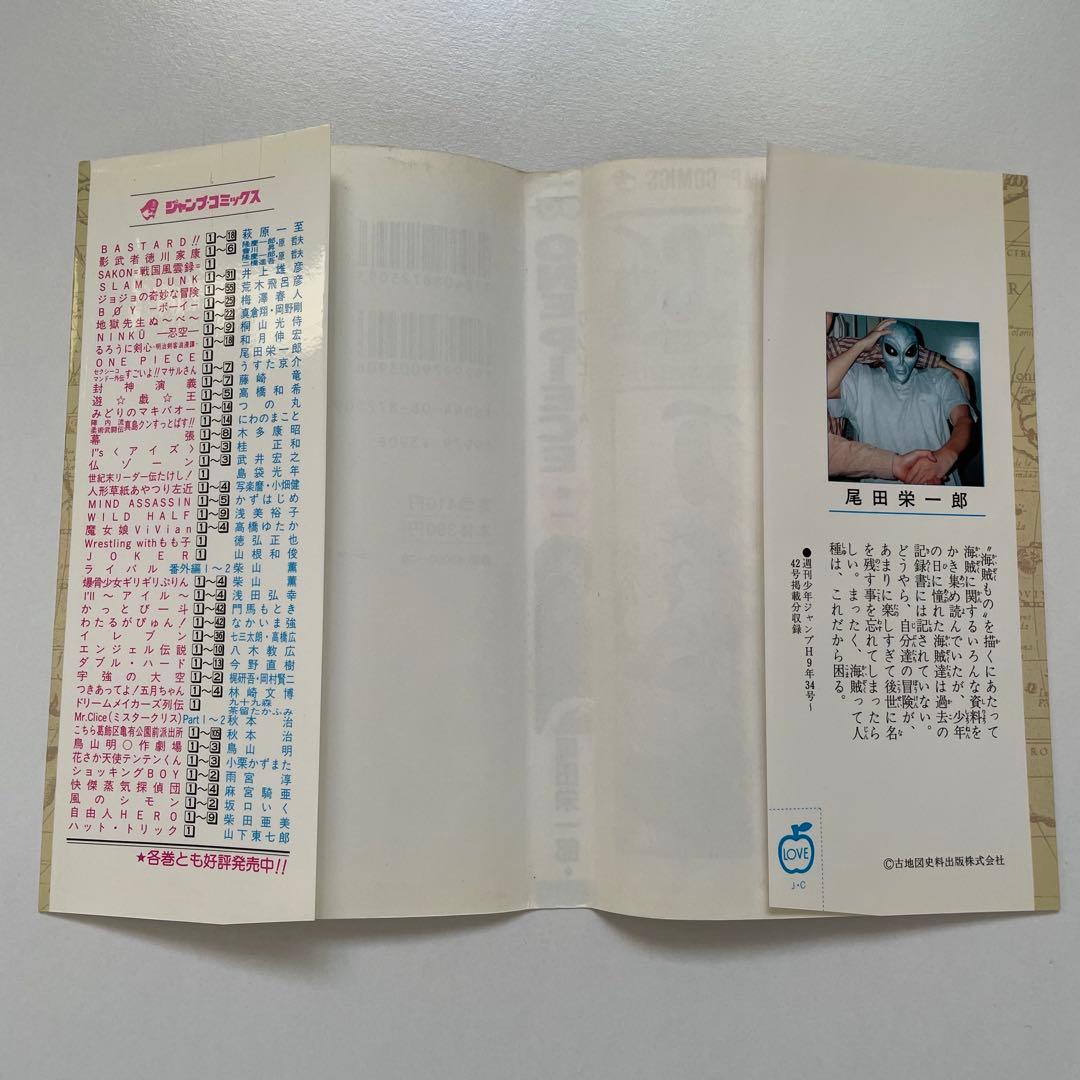 ジャンプ・コミックス
BASTARD!! 1～18 萩原一至
影武者徳川家康 1～6 隆慶一郎・原哲夫 會川昇
SAKON=戦国風雲録= 1 隆慶一郎・原哲夫 二橋進吾
SLAM DUNK 1～31 井上雄彦
ジョジョの奇妙な冒険 1～55 荒木飛呂彦
BØY ―ボーイ― 1～25 梅澤春人
地獄先生ぬ～べ～ 1～22 真倉翔・岡野剛
NINKŪ ―忍空― 1～9 桐山光侍
るろうに剣心-明治剣客浪漫譚- 1～18 和月伸宏
ONE PIECE 1 尾田栄一郎
セクシーコマンドー外伝 すごいよ!!マサルさん 1～7 うすた京介
封神演義 1～7 藤崎竜
遊☆戯☆王 1～5 高橋和希
みどりのマキバオー 1～14 つの丸
陣内流柔術武闘伝 真島クンすっとばす!! 1～14 にわのまこと
幕張 1～8 木多康昭
I"s〈アイズ〉 1～3 桂正和
仏ゾーン 1～3 武井宏之
世紀末リーダー伝たけし! 1 島袋光年
人形草紙あやつり左近 1～4 写楽麿・小畑健
MIND ASSASSIN 1～5 かずはじめ
WILD HALF 1～9 浅美裕子
魔女娘ViVian 1～4 高橋ゆたか
Wrestling withもも子 1 徳弘正也
JOKER 1 山根和俊
ライバル 番外編1～2 柴山薫
爆骨少女ギリギリぷりん 1～4 柴山薫
I'll ～アイル～ 1～4 浅田弘幸
かっとび一斗 1～42 門馬もとき
わたるがぴゅん! 1～42 なかいま強
イレブン 1～36 七三太朗・高橋広
エンジェル伝説 1～10 八木教広
ダブル・ハード 1～13 今野直樹
宇強の大空 1～2 梶研吾・岡村賢二
つきあってよ!五月ちゃん 1～4 林崎文博
ドリームメイカーズ列伝 1 九十九森 茶留たかふみ
Mr.Clice(ミスタークリス) Part1～2 秋本治
こちら葛飾区亀有公園前派出所 1～102 秋本治
鳥山明○作劇場 1～3 鳥山明
花さか天使テンテンくん 1～3 小栗かずまた
ショッキングBOY 1～2 雨宮淳
快傑蒸気探偵団 1～4 麻宮騎亜
風のシモン 1～2 坂口いく
自由人HERO 1～9 柴田亜美
ハット・トリック 1 山下東七郎
★各巻とも好評発売中!!
尾田栄一郎
“海賊もの”を描くにあたって
海賊に関するいろんな資料を
かき集め読んでいたが、少年
の日に憧れた海賊達は過去の
記録書には記されていない。
どうやら、自分達の冒険が、
あまりに楽しすぎて後世に名
を残す事を忘れてしまったら
しい。まったく、海賊って人
種は、これだから困る。
●週刊少年ジャンプH9年34号～
42号掲載分収録
LOVE
J・C
©古地図史料出版株式会社